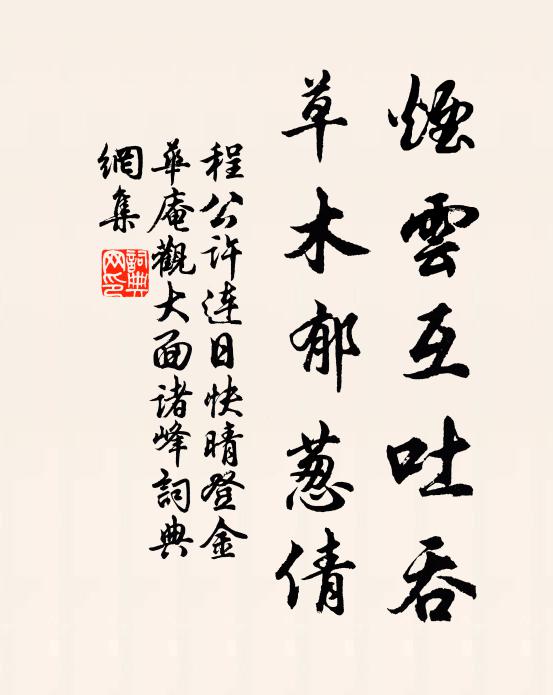 煙雲互吐吞
草木郁葱倩
程公許連日快晴登金
華庵觀大面諸峰詞典
網集
詞典
网印